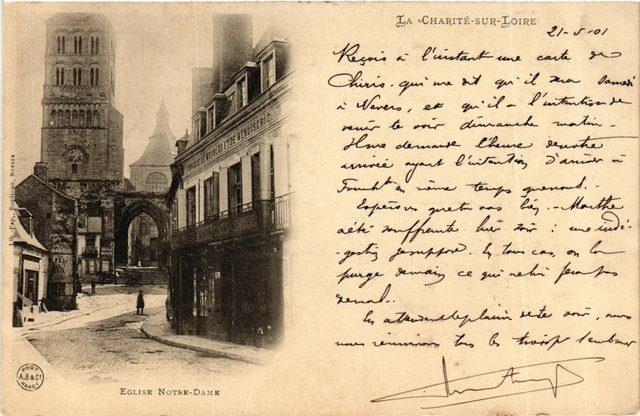 LA CHARITÉ-SUR-LOIRE
21-5-01
Reçois à l'instant une carte de
Chiris qui me dit qu'il sera Samedi
à Nevers, et qu'il a l'intention de
venir te voir dimanche matin.
Il me demande l'heure de notre
arrivée ayant l'intention d'arriver à
en même temps que nous.
Espérons que tu vas bien. Marthe
a été souffrante hier soir : une indi-
gestion je suppose. En tous cas, on la
purge demain ce qui ne lui fera pas
de mal.
En attendant le plaisir de te voir, nous
nous réunissons tous les trois pour t'embrasser
FABRIQUE DE MEUBLES ET DE MENUISERIE
PHOT
A.B & Cie
NANCY
EGLISE NOTRE-DAME